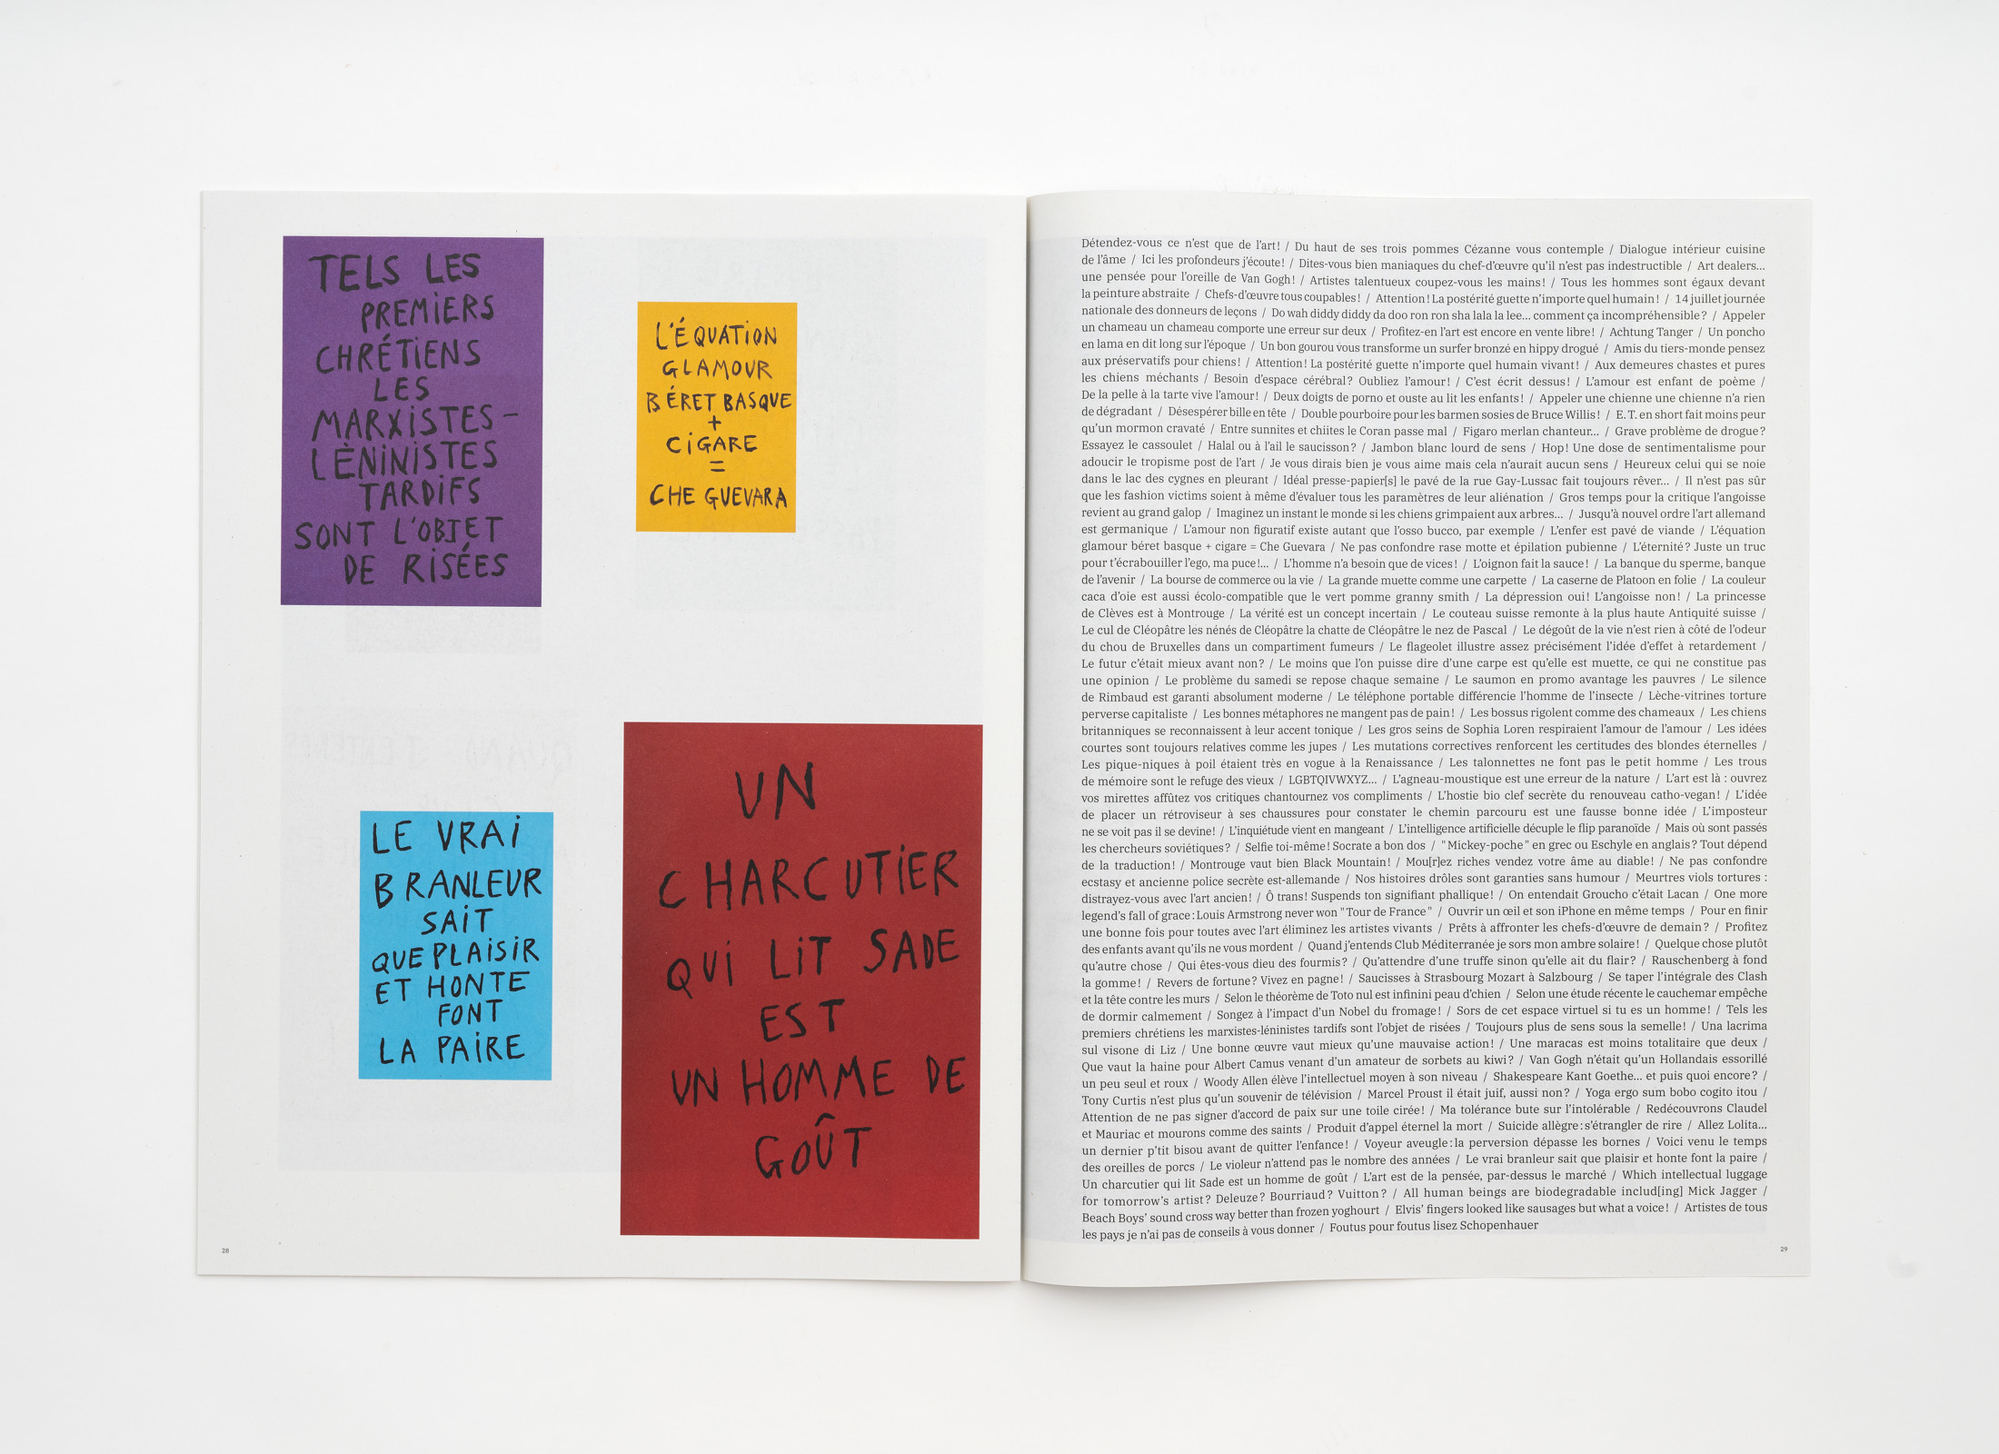 TELS LES
PREMIERS
CHRÉTIENS
LES
MARXISTES-
LÉNINISTES
TARDIFS
SONT L'OBJET
DE RISÉES
L'ÉQUATION
GLAMOUR
BÉRET BASQUE
+
CIGARE
=
CHE GUEVARA
LE VRAI
BRANLEUR
SAIT
QUE PLAISIR
ET HONTE
FONT
LA PAIRE
UN
CHARCUTIER
QUI LIT SADE
EST
UN HOMME DE
GOÛT
28
Détendez-vous ce n'est que de l'art! / Du haut de ses trois pommes Cézanne vous contemple / Dialogue intérieur cuisine
de l'âme / Ici les profondeurs j'écoute! / Dites-vous bien maniaques du chef-d'œuvre qu'il n'est pas indestructible / Art dealers...
une pensée pour l'oreille de Van Gogh! / Artistes talentueux coupez-vous les mains! / Tous les hommes sont égaux devant
la peinture abstraite / Chefs-d'œuvre tous coupables! / Attention! La postérité guette n'importe quel humain! / 14 juillet journée
nationale des donneurs de leçons / Do wah diddy diddy da doo ron ron sha lala la lee... comment ça incompréhensible? / Appeler
un chameau un chameau comporte une erreur sur deux / Profitez-en l'art est encore en vente libre! / Achtung Tanger / Un poncho
en lama en dit long sur l'époque / Un bon gourou vous transforme un surfer bronzé en hippy drogué / Amis du tiers-monde pensez
aux préservatifs pour chiens! / Attention! La postérité guette n'importe quel humain vivant! / Aux demeures chastes et pures
les chiens méchants / Besoin d'espace cérébral? Oubliez l'amour! / C'est écrit dessus! / L'amour est enfant de poème /
De la pelle à la tarte vive l'amour! / Deux doigts de porno et ouste au lit les enfants! / Appeler une chienne une chienne n'a rien
de dégradant / Désespérer bille en tête / Double pourboire pour les barmen sosies de Bruce Willis! / E.T. en short fait moins peur
qu'un mormon cravaté / Entre sunnites et chiites le Coran passe mal / Figaro merlan chanteur... / Grave problème de drogue?
Essayez le cassoulet / Halal ou à l'ail le saucisson? / Jambon blanc lourd de sens / Hop! Une dose de sentimentalisme pour
adoucir le tropisme post de l'art / Je vous dirais bien je vous aime mais cela n'aurait aucun sens / Heureux celui qui se noie
dans le lac des cygnes en pleurant / Idéal presse-papier[s] le pavé de la rue Gay-Lussac fait toujours rêver... / Il n'est pas sûr
que les fashion victims soient à même d'évaluer tous les paramètres de leur aliénation / Gros temps pour la critique l'angoisse
revient au grand galop / Imaginez un instant le monde si les chiens grimpaient aux arbres... / Jusqu'à nouvel ordre l'art allemand
est germanique / L'amour non figuratif existe autant que l'osso bucco, par exemple / L'enfer est pavé de viande / L'équation
glamour béret basque + cigare = Che Guevara / Ne pas confondre rase motte et épilation pubienne / L'éternité? Juste un truc
pour t'écrabouiller l'ego, ma puce!... / L'homme n'a besoin que de vices! / L'oignon fait la sauce! / La banque du sperme, banque
de l'avenir / La bourse de commerce ou la vie / La grande muette comme une carpette / La caserne de Platoon en folie / La couleur
caca d'oie est aussi écolo-compatible que le vert pomme granny smith / La dépression oui! L'angoisse non! / La princesse
de Clèves est à Montrouge / La vérité est un concept incertain / Le couteau suisse remonte à la plus haute Antiquité suisse /
Le cul de Cléopâtre les nénés de Cléopâtre la chatte de Cléopâtre le nez de Pascal / Le dégoût de la vie n'est rien à côté de l'odeur
du chou de Bruxelles dans un compartiment fumeurs / Le flageolet illustre assez précisément l'idée d'effet à retardement /
Le futur c'était mieux avant non? / Le moins que l'on puisse dire d'une carpe est qu'elle est muette, ce qui ne constitue pas
une opinion / Le problème du samedi se repose chaque semaine / Le saumon en promo avantage les pauvres / Le silence
de Rimbaud est garanti absolument moderne / Le téléphone portable différencie l'homme de l'insecte / Lèche-vitrines torture
perverse capitaliste / Les bonnes métaphores ne mangent pas de pain! / Les bossus rigolent comme des chameaux / Les chiens
britanniques se reconnaissent à leur accent tonique / Les gros seins de Sophia Loren respiraient l'amour de l'amour / Les idées
courtes sont toujours relatives comme les jupes / Les mutations correctives renforcent les certitudes des blondes éternelles /
Les pique-niques à poil étaient très en vogue à la Renaissance / Les talonnettes ne font pas le petit homme / Les trous
de mémoire sont le refuge des vieux / LGBTQIVWXYZ... / L'agneau-moustique est une erreur de la nature / L'art est là : ouvrez
vos mirettes affûtez vos critiques chantournez vos compliments / L'hostie bio clef secrète du renouveau catho-vegan! / L'idée
de placer un rétroviseur à ses chaussures pour constater le chemin parcouru est une fausse bonne idée / L'imposteur
ne se voit pas il se devine! / L'inquiétude vient en mangeant / L'intelligence artificielle décuple le flip paranoïde / Mais où sont passés
les chercheurs soviétiques? / Selfie toi-même! Socrate a bon dos / "Mickey-poche" en grec ou Eschyle en anglais? Tout dépend
de la traduction! / Montrouge vaut bien Black Mountain! / Mou[r]ez riches vendez votre âme au diable! / Ne pas confondre
ecstasy et ancienne police secrète est-allemande / Nos histoires drôles sont garanties sans humour / Meurtres viols tortures :
distrayez-vous avec l'art ancien! / Ô trans! Suspends ton signifiant phallique! / On entendait Groucho c'était Lacan / One more
legend's fall of grace: Louis Armstrong never won "Tour de France" / Ouvrir un œil et son iPhone en même temps / Pour en finir
une bonne fois pour toutes avec l'art éliminez les artistes vivants / Prêts à affronter les chefs-d'œuvre de demain? / Profitez
des enfants avant qu'ils ne vous mordent / Quand j'entends Club Méditerranée je sors mon ambre solaire! / Quelque chose plutôt
qu'autre chose / Qui êtes-vous dieu des fourmis? / Qu'attendre d'une truffe sinon qu'elle ait du flair? / Rauschenberg à fond
la gomme! / Revers de fortune? Vivez en pagne! / Saucisses à Strasbourg Mozart à Salzbourg / Se taper l'intégrale des Clash
et la tête contre les murs / Selon le théorème de Toto nul est infinini peau d'chien / Selon une étude récente le cauchemar empêche
de dormir calmement / Songez à l'impact d'un Nobel du fromage! / Sors de cet espace virtuel si tu es un homme! / Tels les
premiers chrétiens les marxistes-léninistes tardifs sont l'objet de risées / Toujours plus de sens sous la semelle! / Una lacrima
sul visone di Liz / Une bonne œuvre vaut mieux qu'une mauvaise action! / Une maracas est moins totalitaire que deux /
Que vaut la haine pour Albert Camus venant d'un amateur de sorbets au kiwi? / Van Gogh n'était qu'un Hollandais essorillé
un peu seul et roux / Woody Allen élève l'intellectuel moyen à son niveau / Shakespeare Kant Goethe... et puis quoi encore? /
Tony Curtis n'est plus qu'un souvenir de télévision / Marcel Proust il était juif, aussi non? / Yoga ergo sum bobo cogito itou /
Attention de ne pas signer d'accord de paix sur une toile cirée! / Ma tolérance bute sur l'intolérable / Redécouvrons Claudel
et Mauriac et mourons comme des saints / Produit d'appel éternel la mort / Suicide allègre: s'étrangler de rire / Allez Lolita...
un dernier p'tit bisou avant de quitter l'enfance! / Voyeur aveugle: la perversion dépasse les bornes / Voici venu le temps
des oreilles de porcs / Le violeur n'attend pas le nombre des années / Le vrai branleur sait que plaisir et honte font la paire /
Un charcutier qui lit Sade est un homme de goût / L'art est de la pensée, par-dessus le marché / Which intellectual luggage
for tomorrow's artist? Deleuze? Bourriaud? Vuitton? / All human beings are biodegradable includ[ing] Mick Jagger /
Beach Boys' sound cross way better than frozen yoghourt / Elvis' fingers looked like sausages but what a voice! / Artistes de tous
les pays je n'ai pas de conseils à vous donner / Foutus pour foutus lisez Schopenhauer
29